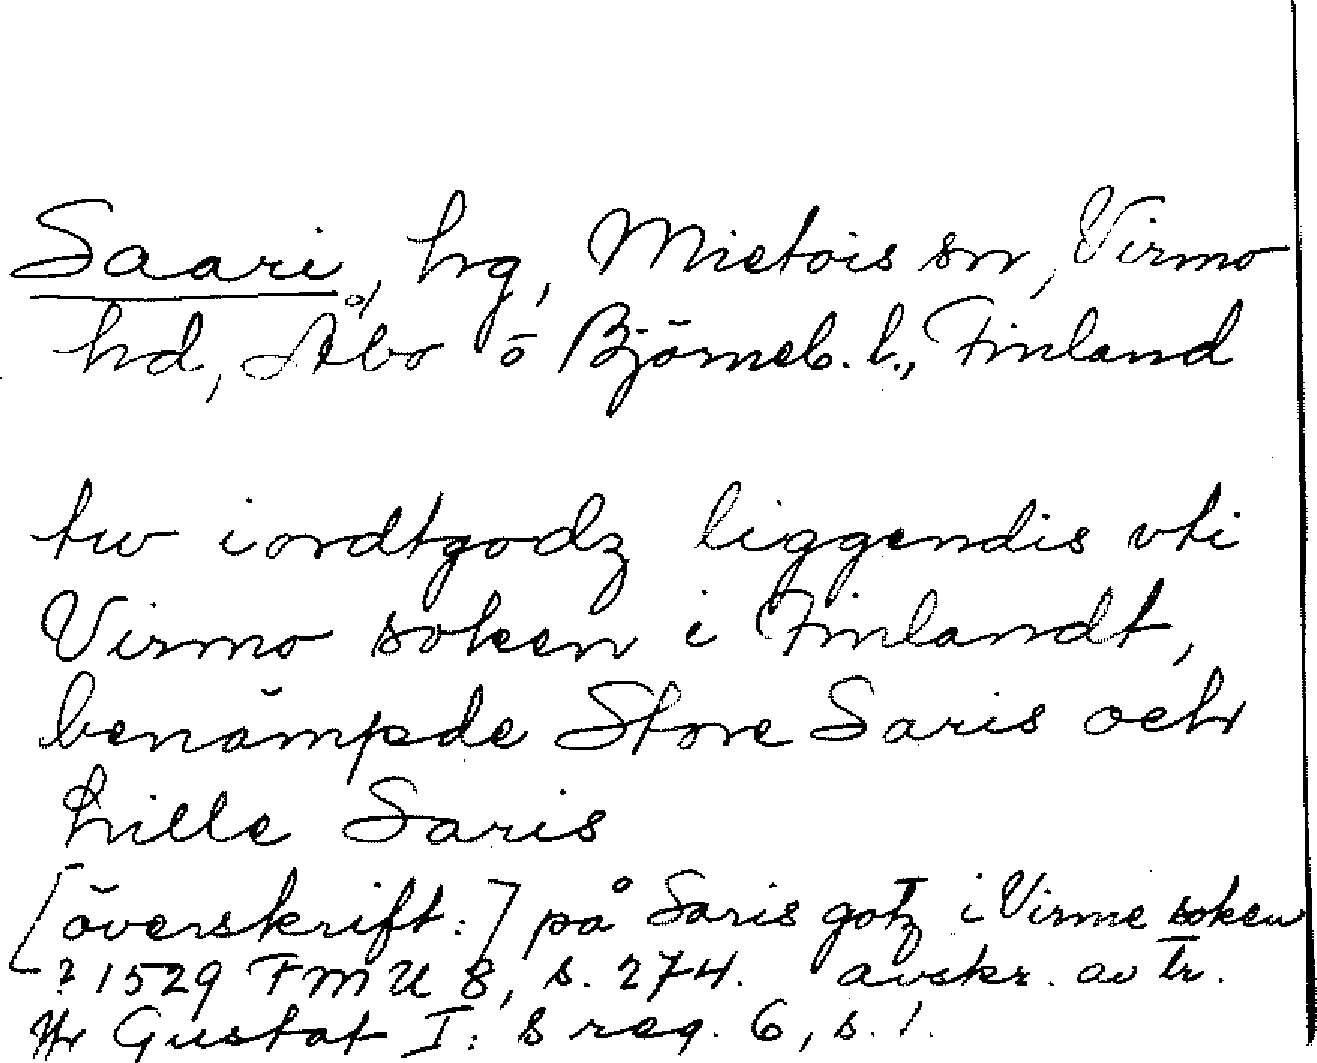 Saari, hg, Mietois sn, Virmo
hd, Åbo o Björneb. l., Finland
tw iordtgodz liggendis vti
Virmo soken i Finlandt,
benämpde Store Saris och
Lille Saris
[överskrift:] på Saris gotz i Virme soken
? 1529 FMU 8, s. 274. avskr. av Tr.
Gustaf I:s reg. 6, s. 1.